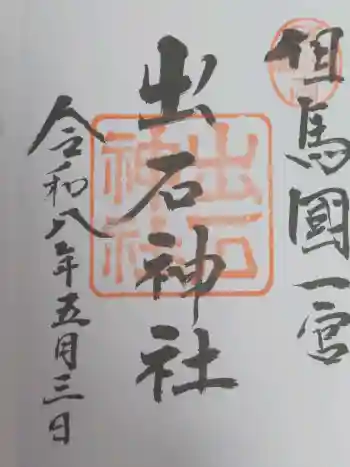 但馬國一宮
出石神社
出石神社
令和八年五月三日